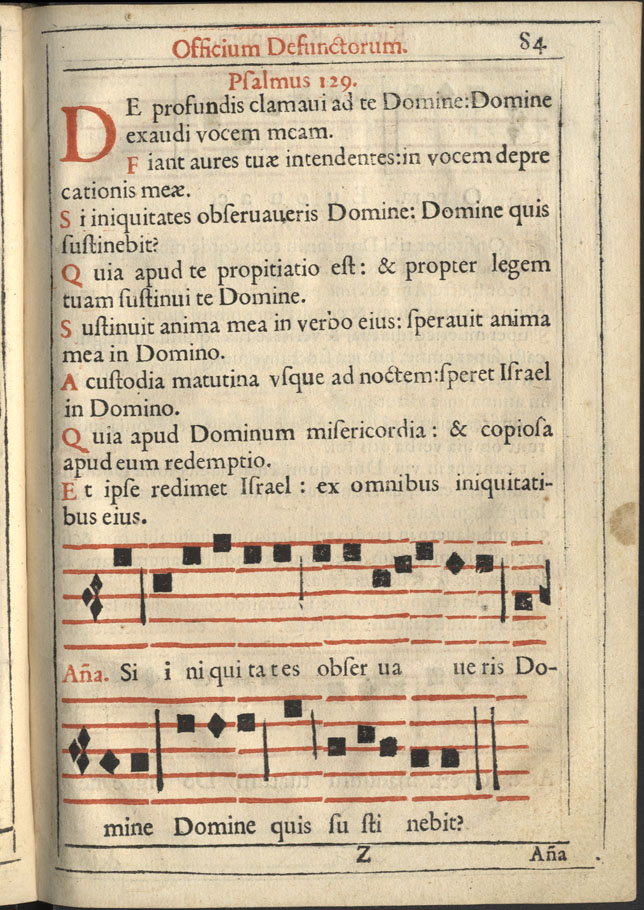 Officium Defunctorum. 84
Pſalmus 129.
DE profundis clamaui ad te Domine:Domine
exaudi vocem meam.
Fiant aures tuæ intendentes:in vocem depre
cationis meæ.
Si iniquitates obſeruaueris Domine: Domine quis
ſuſtinebit?
Quia apud te propitiatio eſt: & propter legem
tuam ſuſtinui te Domine.
Suſtinuit anima mea in verbo eius: ſperauit anima
mea in Domino.
A cuſtodia matutina vſque ad noctem:ſperet Iſrael
in Domino.
Quia apud Dominum miſericordia: & copioſa
apud eum redemptio.
Et ipſe redimet Iſrael: ex omnibus iniquitati-
bus eius.
Aña. Si i ni qui ta tes obſer ua ue ris Do-
mine Domine quis ſu ſti nebit?
Z Aña